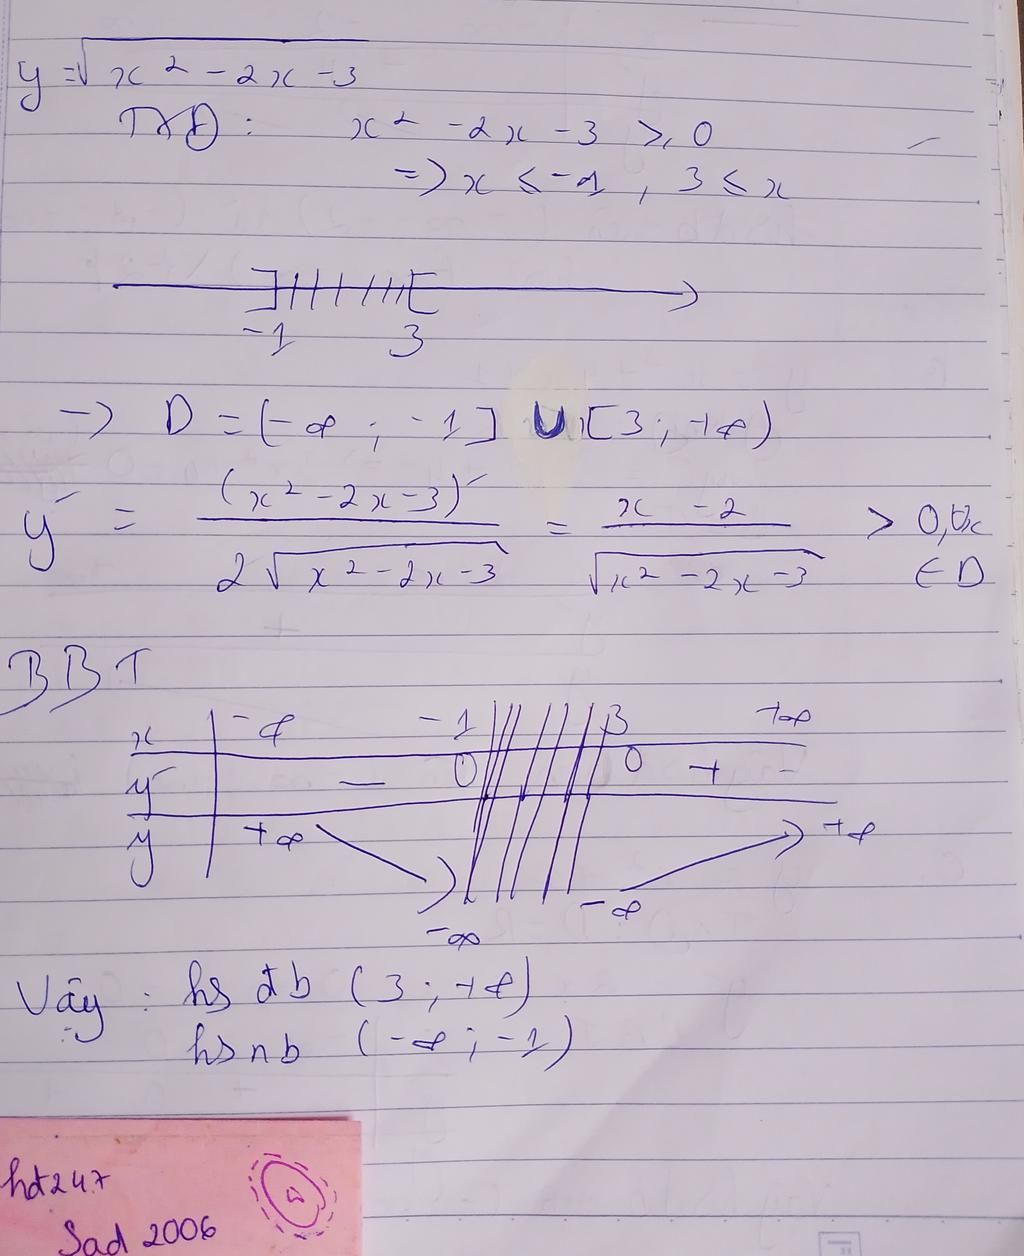 y = √(x² - 2x - 3)
TXĐ : x² - 2x - 3 ⩾ 0
=> x ≤ -1 , 3 ≤ x
-1 3
-> D = (-∞ ; -1] ∪ [3 ; +∞)
y' = (x² - 2x - 3)' / 2√(x² - 2x - 3) = x - 2 / √(x² - 2x - 3) > 0, ∀x ∈ D
BBT
x -∞ -1 3 +∞
y' - 0 0 + -
y +∞ -∞ -∞ +∞
Vậy : hs đb (3 ; +∞)
hs nb (-∞ ; -1)
hdt247
Sad 2006